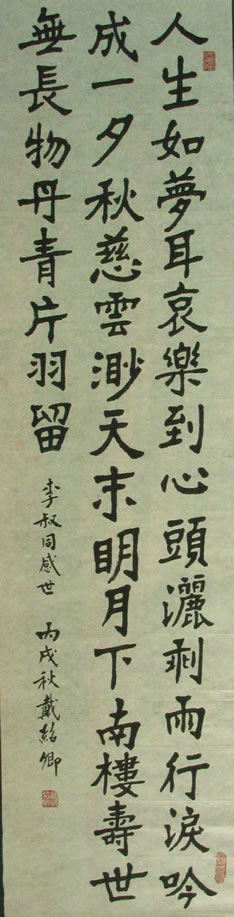 人生如夢耳哀樂到心頭灑剩兩行淚吟
成一夕秋慈雲渺天末明月下南樓壽世
無長物丹青片羽留
李叔同感世 丙戌秋戴紹卿